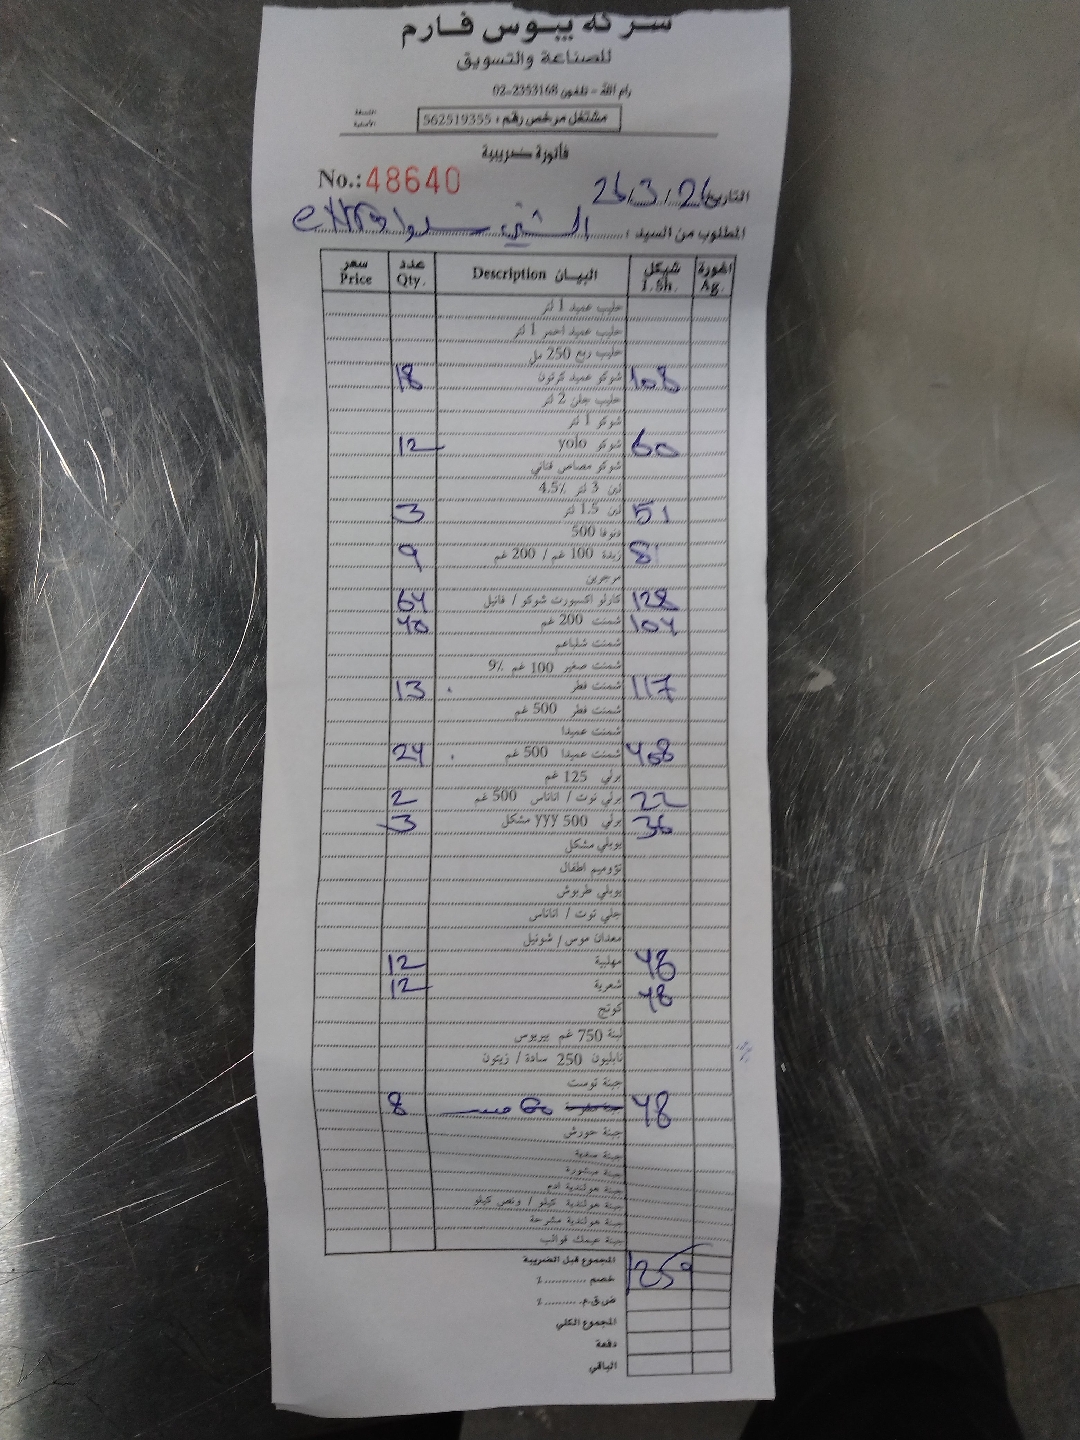 شركة بيوس فارم
للصناعة والتسويق
رام الله - تلفون 02-2353168
مشتغل مرخص رقم : 562519355
النسخة الأصلية
فاتورة ضريبية
No.: 48640
التاريخ 26/3/26
المطلوب من السيد : الشني extra
سعر Price عدد Qty. البيـان Description شيكل I.Sh. اغورة Ag.
حليب عميد 1 لتر
حليب عميد احمر 1 لتر
حليب ربع 250 مل
18 شوكو عميد كرتون 108
حليب جلن 2 لتر
شوكو 1 لتر
12 شوكو yolo 60
شوكو مصاص قناني
لبن 3 لتر 4.5%
3 لبن 1.5 لتر 51
دنونا 500
9 زبدة 100 غم / 200 غم 81
مرجرين
64 كارلو اكسبورت شوكو / فانيل 128
40 شمنت 200 غم 104
شمنت شلباعم
شمنت صغير 100 غم 9%
13 شمنت فطر 117
شمنت فطر 500 غم
شمنت عميدا
24 شمنت عميدا 500 غم 408
برلي 125 غم
2 برلي توت / اناناس 500 غم 22
3 برلي 500 yyy مشكل 36
يوبلي مشكل
تؤوميم اطفال
يوبلي طربوش
جلي توت / اناناس
معدان موس / شونيل
12 مهلبية 48
12 شعرية 48
كوتج
لبنة 750 غم بيريوس
نابليون 250 سادة / زيتون
جبنة توست
8 48
جبنة حورش
جبنة صفية
جبنة مبشورة
جبنة هولندية ادم
جبنة هولندية كيلو / ونص كيلو
جبنة هولندية مشرحة
جبنة عيمك قوالب
المجموع قبل الضريبة 1259
خصم ............ %
ض.ق.م. .......... %
المجموع الكلي
دفعة
الباقي